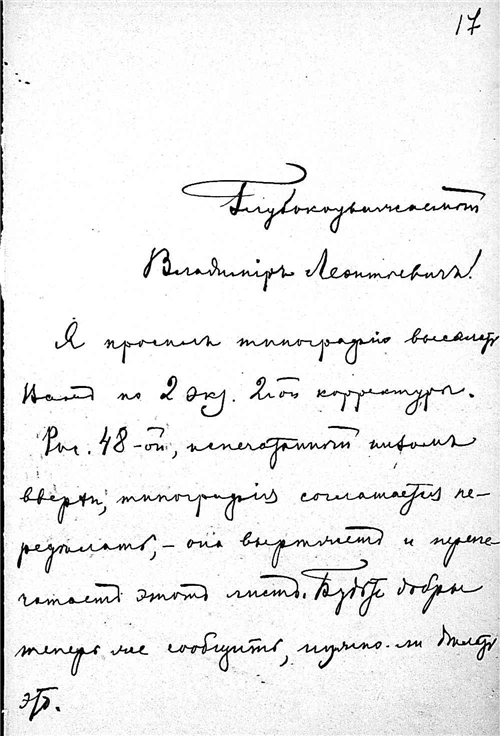 17
Глубокоуважаемый
Владимiръ Леонтьевичъ!
Я просилъ типографiю высылать
Вамъ по 2 экз. 2-ой корректуры.
Рис. 48-ой, испечатанный низомъ
вверхъ, типографiя соглашается пе-
редѣлать, – она вырѣжетъ и перепе-
чатаетъ этотъ листъ. Будьте добры
теперь же сообщить, нужно-ли дѣлать
это.